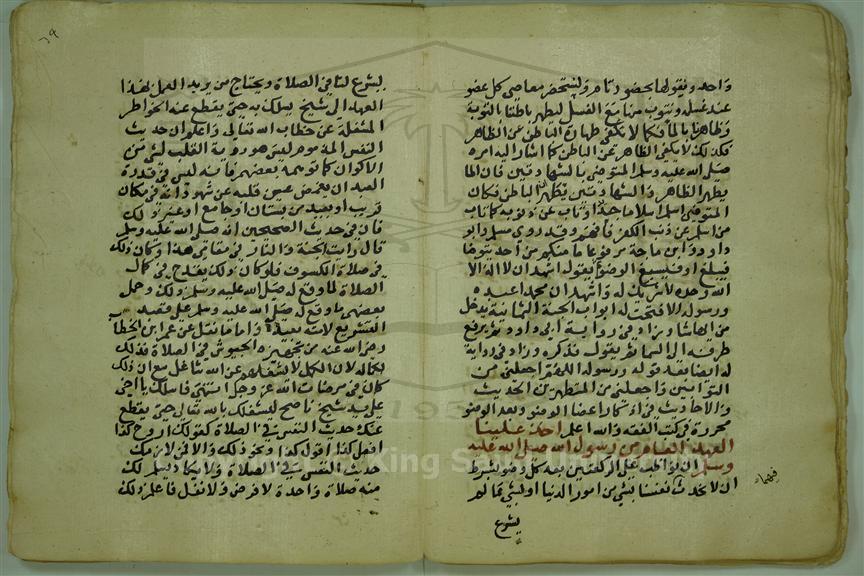 واحد ونقولها بحضور تام ونستحضر معاصي كل عضو
عند غسله ونتوب منها مع الغسل ليطهر باطننا بالتوبة
وظاهرنا بالماء فكما لا يكفي طهارة الباطن عن الظاهر
فكذلك لا يكفي الظاهر عن الباطن كما اشار اليه امره
صلى الله عليه وسلم المتوضي بالشهادتين فان الما
يطهر الظاهر والشهادتين يطهران الباطن فكان
المتوضي اسلم اسلاما جديدا وتاب عن ذنوبه كما تاب
من اسلم عن ذنب الكفر فافهم وقد روى مسلم وابو
داوود وابن ماجة مرفوعا ما منكم من احد يتوضا
فيبلغ او فيسبغ الوضوء ثم يقول اشهد ان لا اله الا
الله وحده لا شريك له واشهد ان محمدا عبده
ورسوله الا فتحت له ابواب الجنة الثمانية يدخل
من ايها شا وزاد في رواية ابي داود ثم يرفع
طرفه الى السما ثم يقول فذكره وزاد في رواية
له ايضا بعد قوله ورسوله اللهم اجعلني من
التوابين واجعلني من المتطهرين الحديث
والاحاديث في اذكار اعضا الوضو وبعد الوضو
محررة في كتب الفقه والله اعلم اخذ علينا
العهد العام من رسول الله صلى الله عليه
وسلم ان نواظب على الركعتين بعد كل وضو بشرط
ان لا نحدث نفسنا بشي من امور الدنيا او بشي مما لم
يشرع
٦٩
يشرع لنا في الصلاة ويحتاج من يريد العمل بهذا
العهد الى شيخ يسلك به حتى يقطع عنه الخواطر
المشغلة عن خطاب الله تعالى واعلم ان حديث
النفس المذموم ليس هو روية القلب لشي من
الاكوان كما توهمه بعضهم فانه ليس في قدرة
العبد ان يغمض عين قلبه عن شهود انه في مكان
قريب او بعيد من بستان او جامع او غير ذلك
فان في حديث الصحيحين انه صلى الله عليه وسلم
قال رايت الجنة والنار في مقامي هذا وكان ذلك
في صلاة الكسوف فلو كان ذلك يقدح في كمال
الصلاة لما وقع له صلى الله عليه وسلم ذلك وحمل
بعضهم ما وقع له صلى الله عليه وسلم على قصد
التشريع لامته بعيد واما ما نقل عن عمر ابن الخطاب
رضي الله عنه من تجهيزه الجيوش في الصلاة فذلك
لكماله لان الكمل لا يشغلهم عن الله شاغل مع ان ذلك
كان في مرضات الله عز وجل انتهى فاسلك يا اخي
على يد شيخ ناصح ليشغلك بالله تعالى حتى يقطع
عنك حديث النفس في الصلاة كقولك اروح كذا
افعل كذا اقول كذا ونحو ذلك والا فمن لازمك
حديث النفس في الصلاة ولا يكاد يسلم لك
منه صلاة واحدة لا فرض ولا نفل فاعلم ذلك